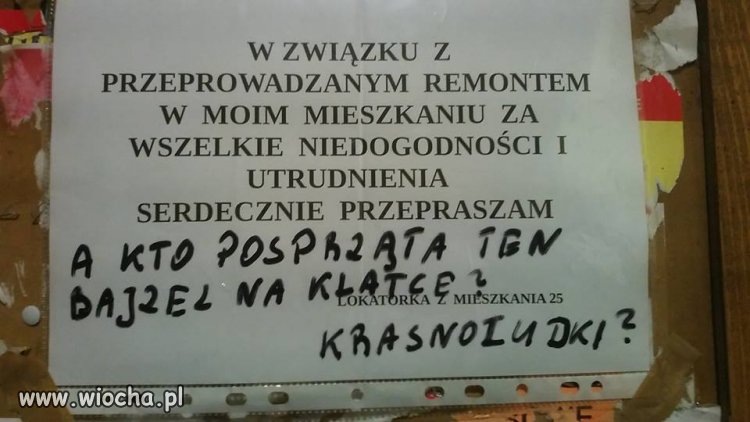 W ZWIĄZKU Z
PRZEPROWADZANYM REMONTEM
W MOIM MIESZKANIU ZA
WSZELKIE NIEDOGODNOŚCI I
UTRUDNIENIA
SERDECZNIE PRZEPRASZAM
A KTO POSPRZĄTA TEN
BAJZEL NA KLATCE?
LOKATORKA Z MIESZKANIA 25
KRASNOLUDKI?
www.wiocha.pl